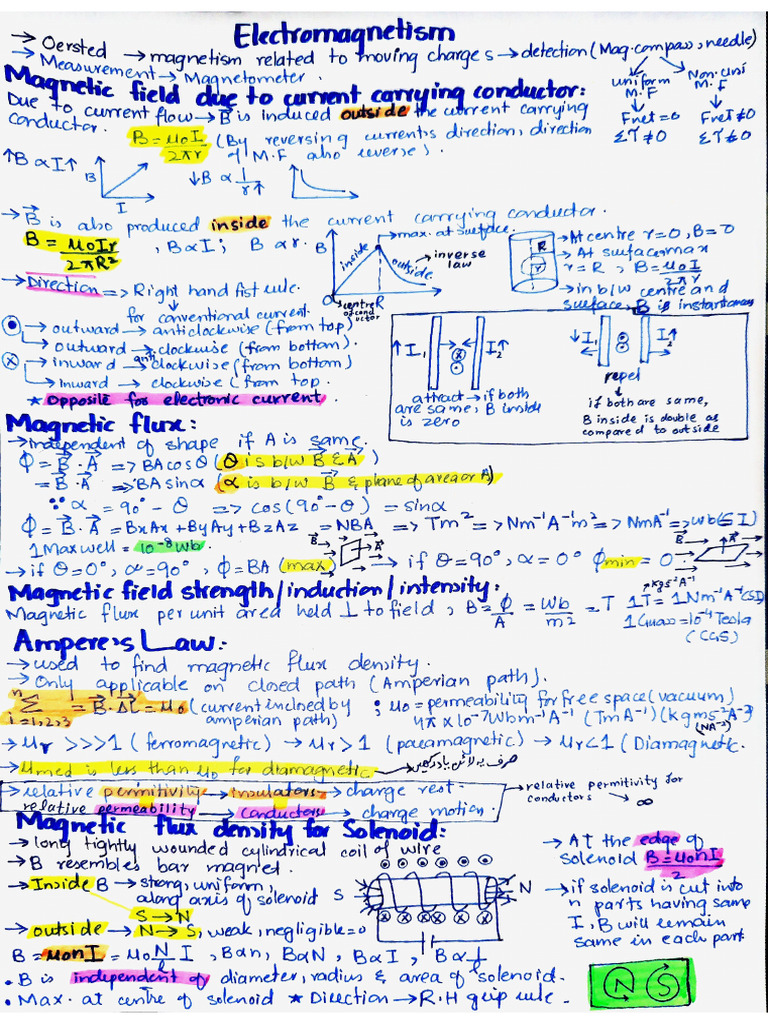 Electromagnetism
→ Oersted → magnetism related to moving charges → detection (Mag. compass, needle)
→ Measurement → Magnetometer.
uniform M.F
Non. uni M.F
Fnet = 0
Fnet ≠ 0
Στ ≠ 0
Στ ≠ 0
Magnetic field due to current carrying conductor:
Due to current flow → B⃗ is induced outside the current carrying
conductor.
B = μ₀I / 2πr (By reversing current's direction, direction
of M.F also reverse).
↑B ∝ I↑
B
I
↓B ∝ 1/r↑
→ B⃗ is also produced inside the current carrying conductor.
B = μ₀Ir / 2πR² , B ∝ I ; B ∝ r.
B
→ max. at surface.
inside
outside
→ inverse law
O
R
centre of conductor
R
r
→ At centre r=0, B=0
→ At surface → max
r = R , B = μ₀I / 2πr
→ in b/w centre and
surface, B is instantaneous
→ Direction => Right hand fist rule.
for conventional current.
⊙ → outward → anticlockwise (from top)
→ outward → clockwise (from bottom).
⊗ → inward → anticlockwise (from bottom)
→ Inward → clockwise (from top.
★ Opposite for electronic current.
↑I₁
I₂↑
attract → if both
are same, B inside
is zero
↓I₁
I₂↑
repel
if both are same,
B inside is double as
compared to outside
Magnetic flux:
→ independent of shape if A is same.
Φ = B⃗ · A⃗ => BA cosθ (θ is b/w B⃗ & A⃗)
= B⃗ · A⃗ => BA sinα (α is b/w B⃗ & plane of area or A)
∵ α = 90° - θ => cos(90° - θ) = sinα
Φ = B⃗ · A⃗ = BxAx + ByAy + BzAz = NBA => Tm² => Nm⁻¹A⁻¹m² => NmA⁻¹ => wb (SI)
1 Maxwell = 10⁻⁸ Wb
→ if θ = 0°, α = 90°, Φ = BA (max)
B⃗
A⃗
→ if θ = 90°, α = 0° Φmin = 0
B⃗
A⃗
Magnetic field strength/induction/intensity:
Magnetic flux per unit area held ⊥ to field , B = Φ/A = Wb/m² = T
kgs⁻²A⁻¹
1T = 1Nm⁻¹A⁻¹ (SI)
1 Guass = 10⁻⁴ Tesla
(CGS)
Ampere's Law:
→ used to find magnetic flux density.
→ Only applicable on closed path (Amperian path).
Σⁿ i=1,2,3 = B⃗ · ΔL⃗ = μ₀ (current inclosed by
amperian path)
; μ₀ = permeability for free space (vacuum)
4π × 10⁻⁷ Wbm⁻¹A⁻¹ (TmA⁻¹) (kgms⁻²A⁻²)
(NA⁻²)
→ μr >>> 1 (ferromagnetic) → μr > 1 (paramagnetic) → μr < 1 (Diamagnetic.
→ μmed is less than μ₀ for diamagnetic
→ relative permitivity → insulators → charge rest.
relative permeability → conductors → charge motion.
→ relative permitivity for
conductors → ∞
Magnetic flux density for Solenoid:
→ long tightly wounded cylindrical coil of wire
→ B resembles bar magnet.
→ Inside B → strong, uniform,
along axis of solenoid
S → N
→ outside → N → S, weak, negligible = 0
S
N
→ At the edge of
solenoid B = μ₀nI / 2
→ if solenoid is cut into
n parts having same
I, B will remain
same in each part
B = μ₀nI = μ₀ N/ℓ I , B ∝ n, B ∝ N, B ∝ I, B ∝ 1/ℓ
• B is independent of diameter, radius & area of solenoid.
• Max. at centre of solenoid ★ Direction → R.H grip rule.
N
S